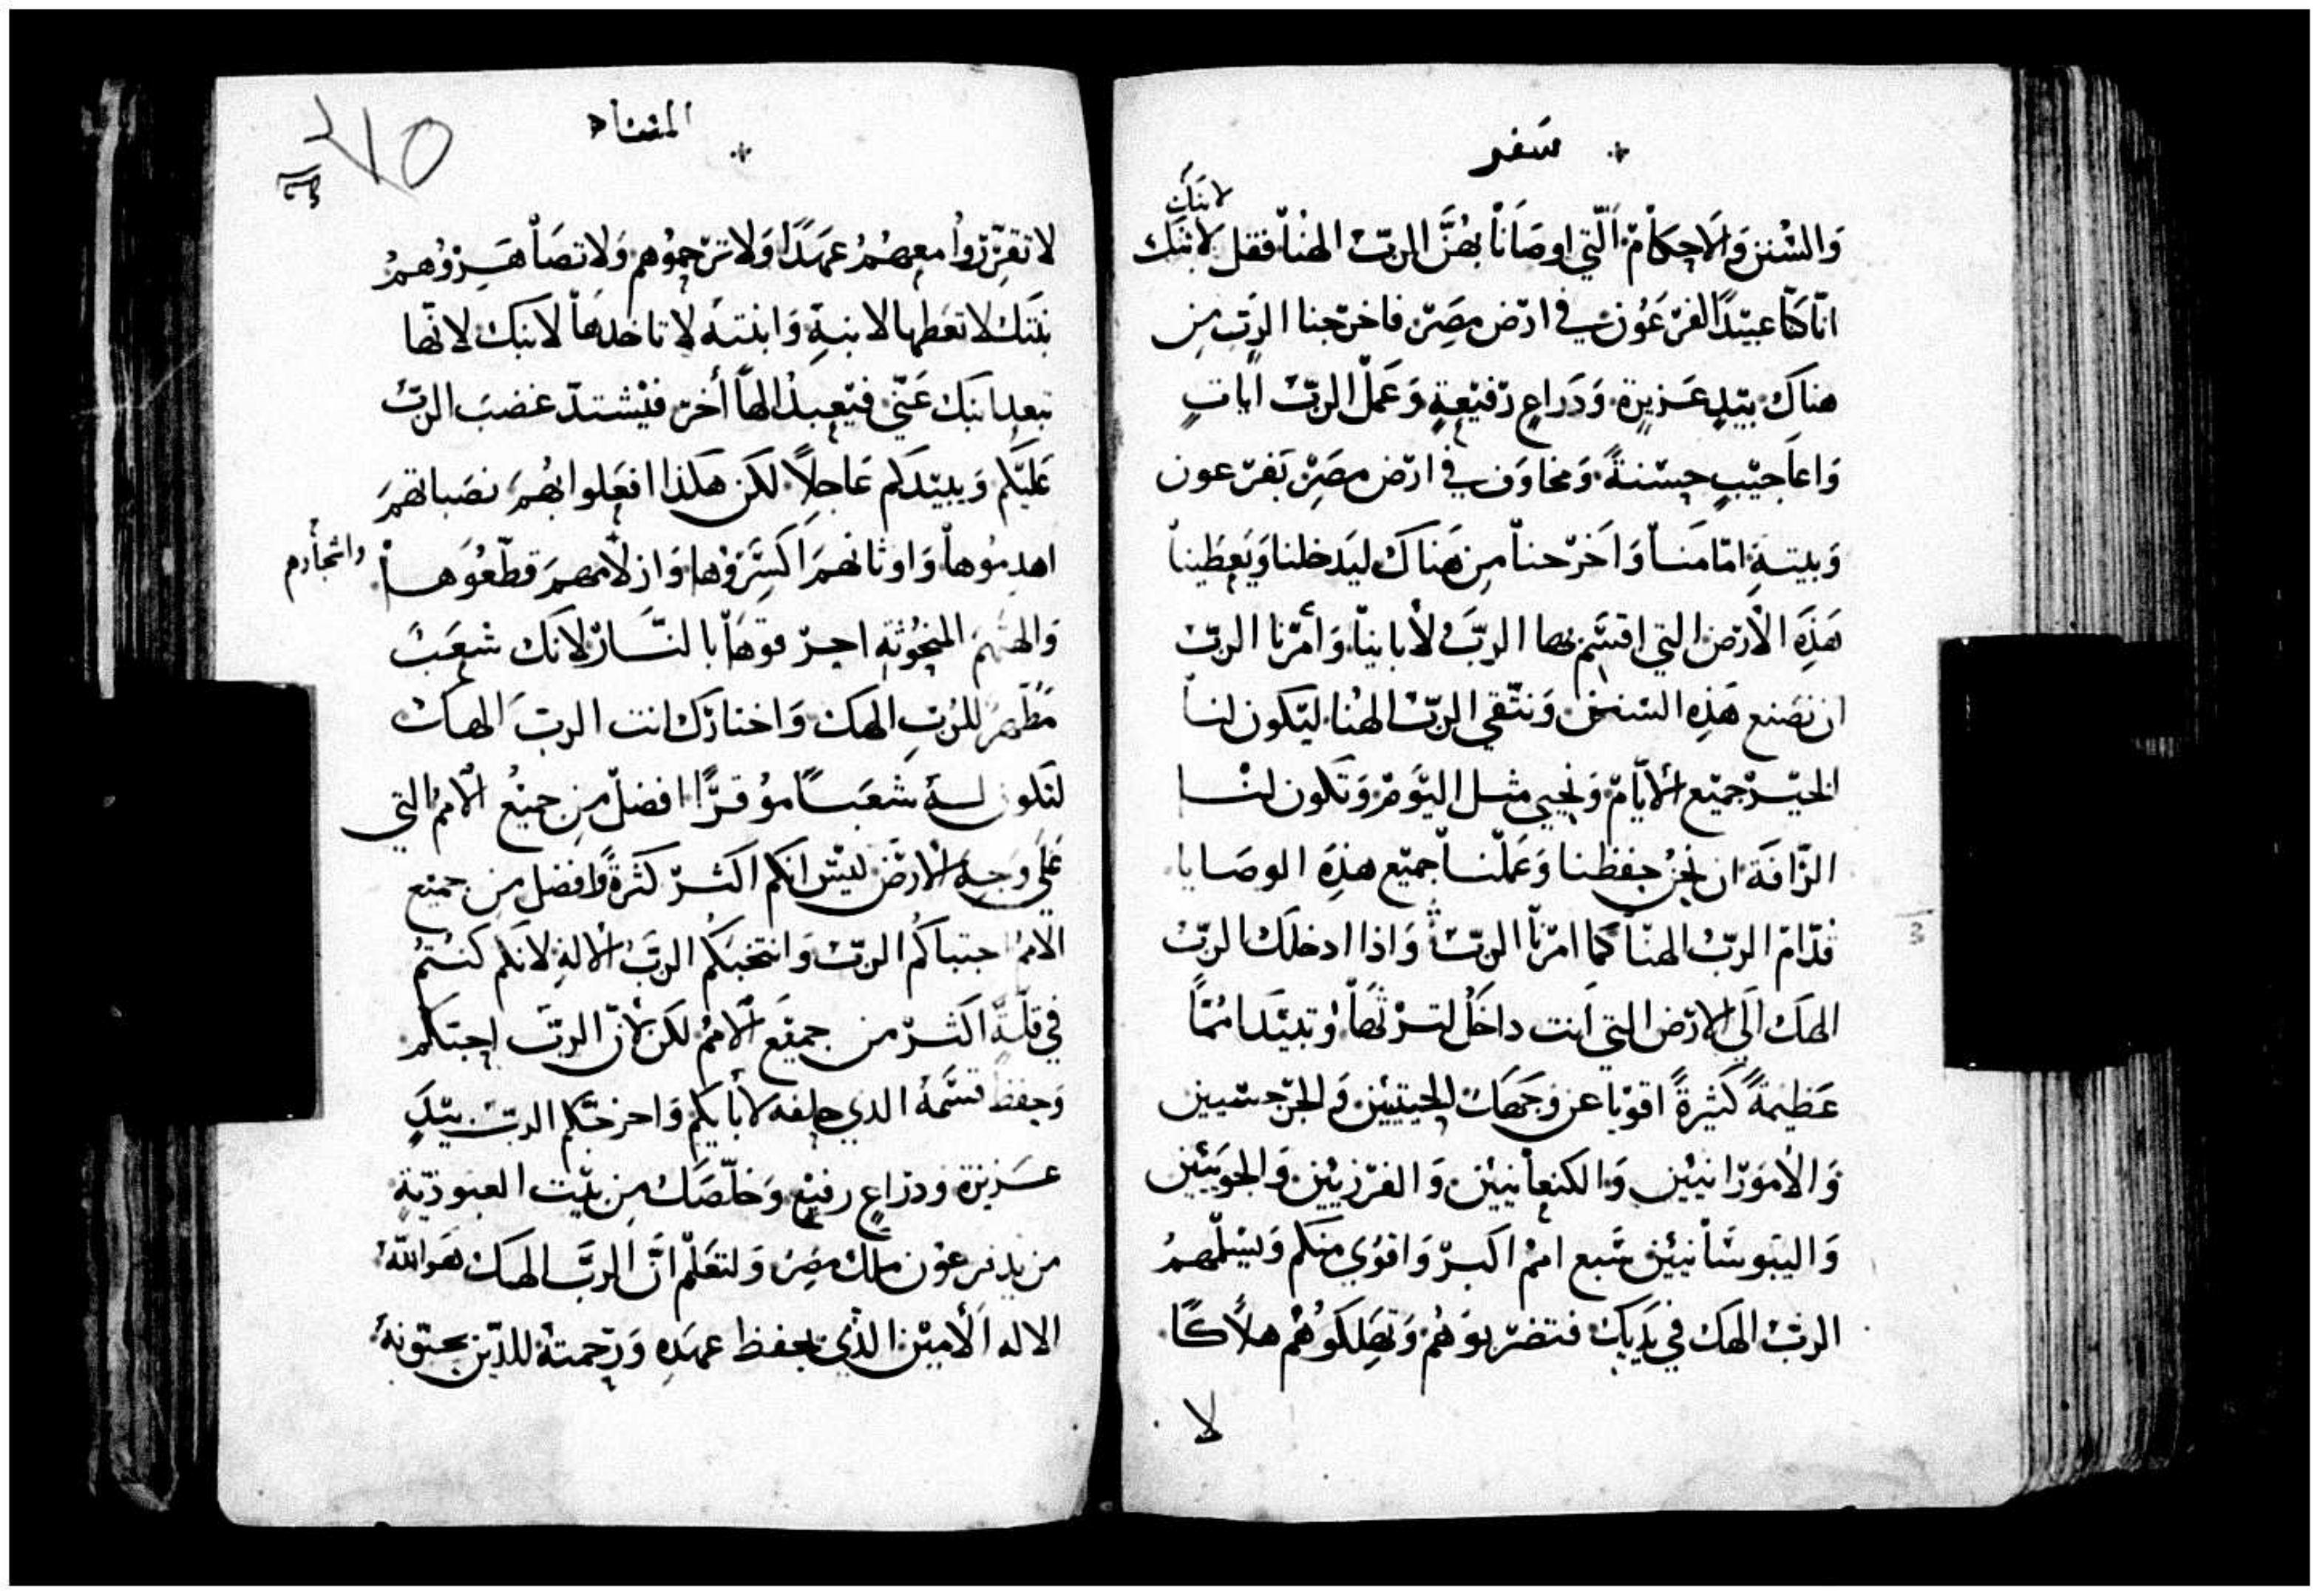 سفر
لابنك
والسنن والاحكام التي اوصانا بهن الرب الهنا فقل لابنك
انا كنا عبيدا لفرعون في ارض مصر فاخرجنا الرب من
هناك بيد عزيزة ودراع رفيعة وعمل الرب ايات
واعاجيب حسنة ومخاوف في ارض مصر بفرعون
وبيته امامنا واخرجنا من هناك ليدخلنا ويعطينا
هذه الارض التي اقسم بها الرب لابائنا وأمرنا الرب
ان نصنع هذه السنن ونتقي الرب الهنا ليكون لنا
الخير جميع الأيام ونحيي مثل اليوم وتكون لنا
الرافة ان نحن حفظنا وعملنا جميع هذه الوصايا
قدام الرب الهنا كما امرنا الرب واذا ادخلك الرب
الهك الى الارض التي انت داخل لترثها وتبيد امما
عظيمة كثيرة اقويا عن وجهك الحيتيين والجرجسيين
والأمورانيين والكنعانيين والفرزيين والحويين
واليبوسانيين سبع امم اكبر واقوي منكم ويسلمهم
الرب الهك في يديك فتضربوهم وتهلكوهم هلاكا
لا
المثناه
٢٧٥
لا تقرروا معهم عهدا ولا ترحموهم ولا تصاهروهم
بنتك لا تعطها لابنه وابنته لا تاخدها لابنك لانها
تبعد ابنك عني فيعبد الها أخر فيشتد غضب الرب
عليكم ويبيدكم عاجلا لكن هكذا افعلوا بهم نصباتهم
اهدموها واوثانهم اكسروها وازلامهم قطعوها
واشجارهم
والهتهم المنحوته احرقوها بالنار لانك شعب
مطهر للرب الهك واختارك انت الرب الهك
لتكون له شعبا موقرا افضل من جميع الامم التي
على وجه الارض ليس انكم اكثر كثرة وافضل من جميع
الامم اجتباكم الرب وانتخبكم الرب الاله لانكم كنتم
في قلة اكثر من جميع الامم لكن لأن الرب احبكم
وحفظ قسمه الدي حلفه لأبايكم واخرجكم الرب بيد
عزيزة ودراع رفيع وخلصك من بيت العبودية
من يد فرعون ملك مصر ولتعلم ان الرب الهك هو الله
الاله الأمين الذي يحفظ عهده ورحمته للذين يحبونه